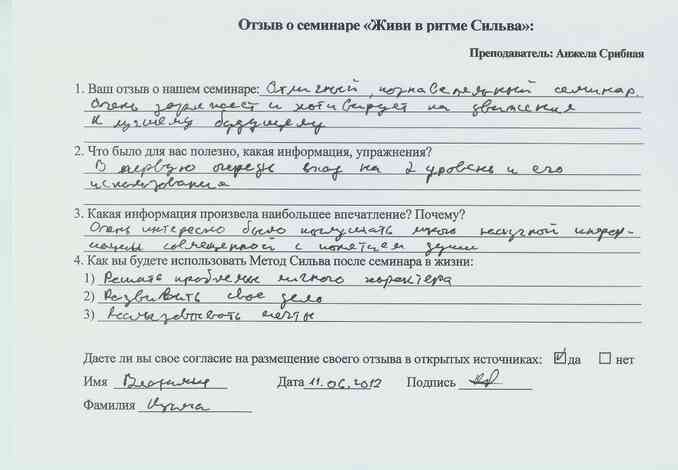 Отзыв о семинаре «Живи в ритме Сильва»:
Преподаватель: Анжела Срибная
1. Ваш отзыв о нашем семинаре: Отличный, познавательный семинар.
Очень заряжает и мотивирует на движения
к лучшему будущему
2. Что было для вас полезно, какая информация, упражнения?
В первую очередь вход на 2 уровень и его
использования
3. Какая информация произвела наибольшее впечатление? Почему?
Очень интересно было послушать много научной инфор-
мации совмещенной с понятием души
4. Как вы будете использовать Метод Сильва после семинара в жизни:
1) Решать проблемы личного характера
2) Развивать свое дело
3) мечты
Даете ли вы свое согласие на размещение своего отзыва в открытых источниках: да нет
Имя Владимир Дата 11.06.2012 Подпись
Фамилия